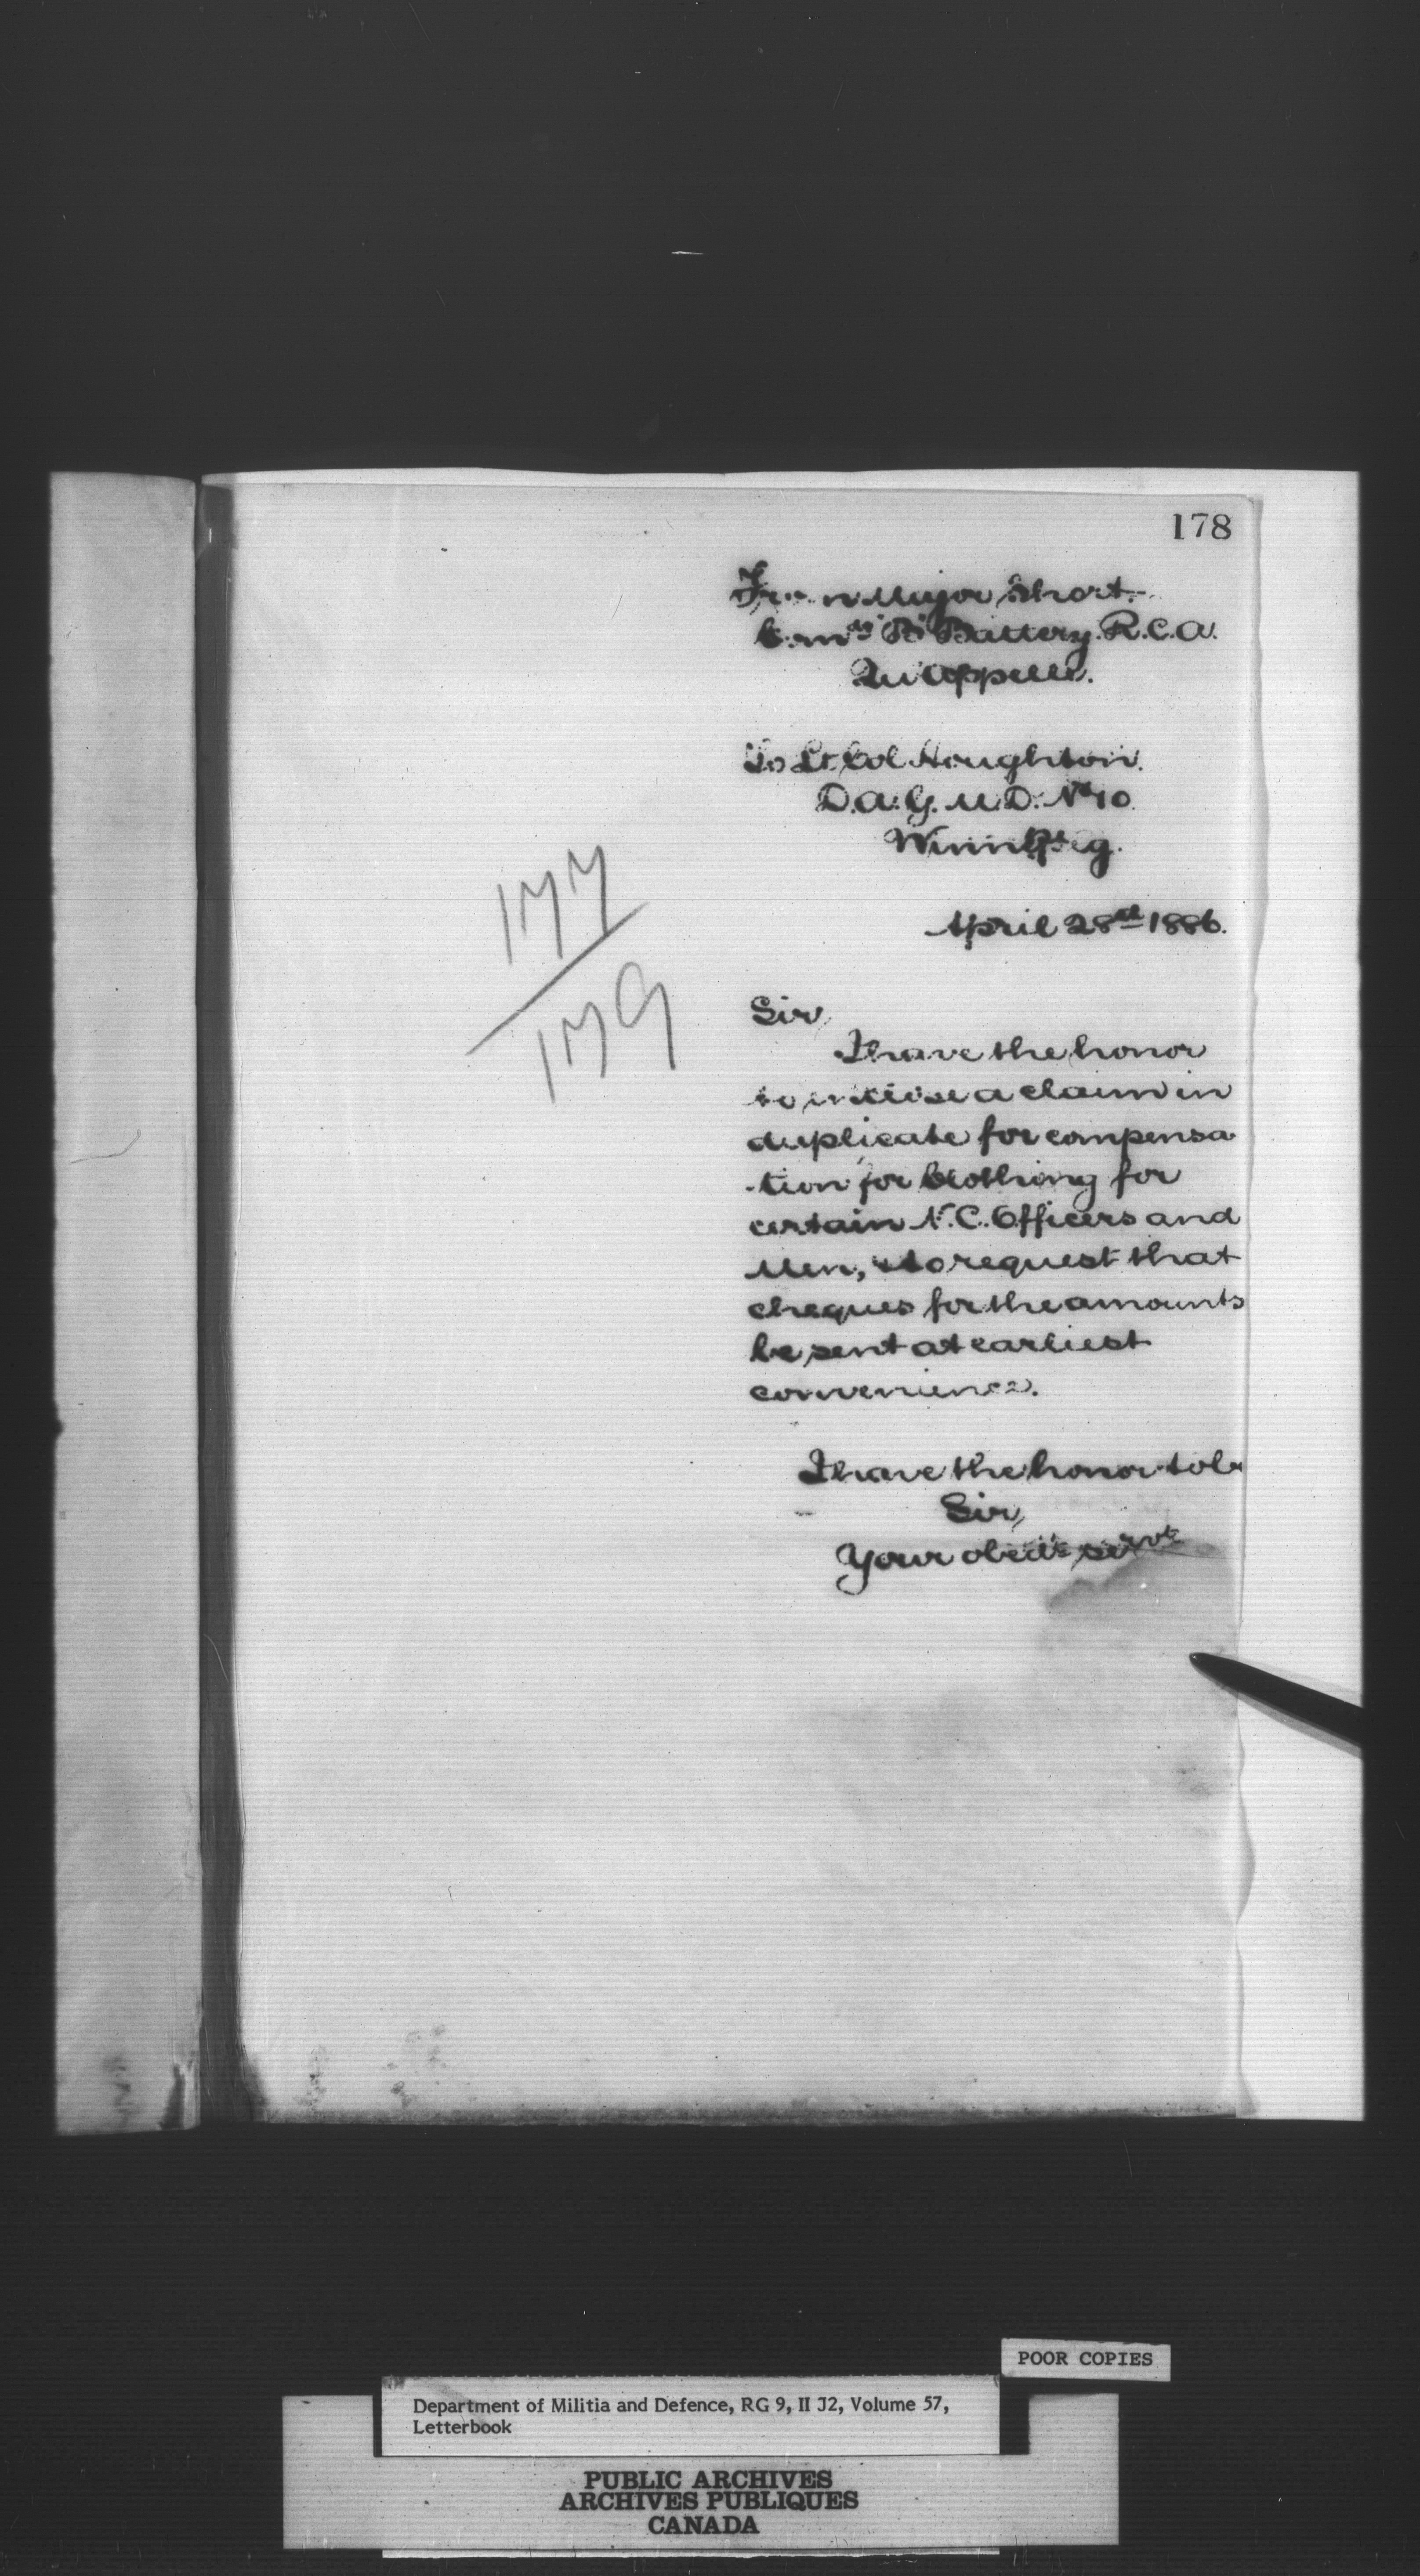 178
From Major Short.
Com^dg "B" Battery. R.C.A.
Qu'Appelle.
To Lt. Col Houghton.
D.A.G. M.D. No 10
Winnipeg.
177
179
April 28th 1886.
Sir,
I have the honor
to inclose a claim in
duplicate for compensa
-tion for Clothing for
certain N.C. Officers and
Men, & to request that
cheques for the amounts
be sent at earliest
convenience.
I have the honor to be
Sir,
Your obedt servt
POOR COPIES
Department of Militia and Defence, RG 9, II J2, Volume 57,
Letterbook
PUBLIC ARCHIVES
ARCHIVES PUBLIQUES
CANADA